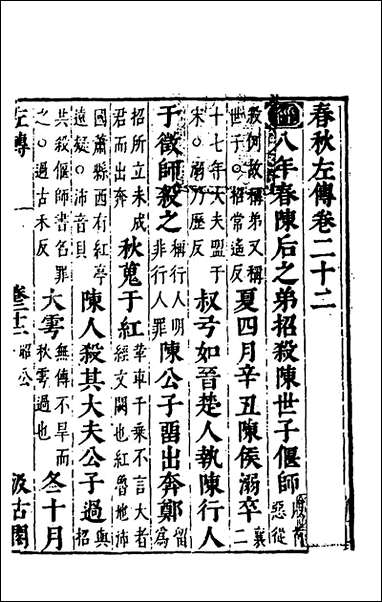 春秋左傳卷二十二
經八年春陳侯之弟招殺陳世子偃師以首惡從
殺例故稱弟又稱世子○招常遙反夏四月辛丑陳侯溺卒襄二
十七年大夫盟于宋○溺乃歷反叔弓如晉楚人執陳行人
干徵師殺之稱行人明非行人罪陳公子留出奔鄭留為
招所立未成君而出奔秋蒐于紅革車千乘不言大者經文闕也紅魯地沛
國蕭縣西有紅亭遠疑○沛音貝陳人殺其大夫公子過與招
共殺偃師書名罪之○過古禾反大雩無傳不旱而秋雩過也冬十月
左傳 卷二十二 昭公 汲古閣